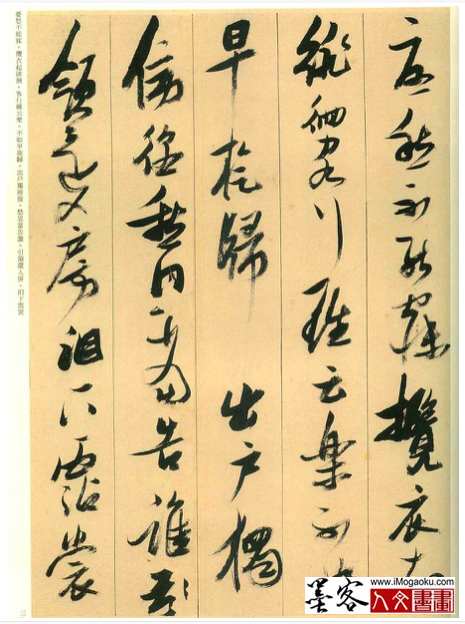 憂愁不能寐攬衣起
徘徊客行雖云樂不如
早旋歸 出戶獨
傍徨愁思當告誰引
領還入房泪下霑裳
憂愁不能寐。攬衣起徘徊。客行雖云樂。不如早旋歸。出戶獨彷徨。愁思當告誰。引領還入房。泪下霑裳
墨客
www.iMogaoku.com
人文書畫